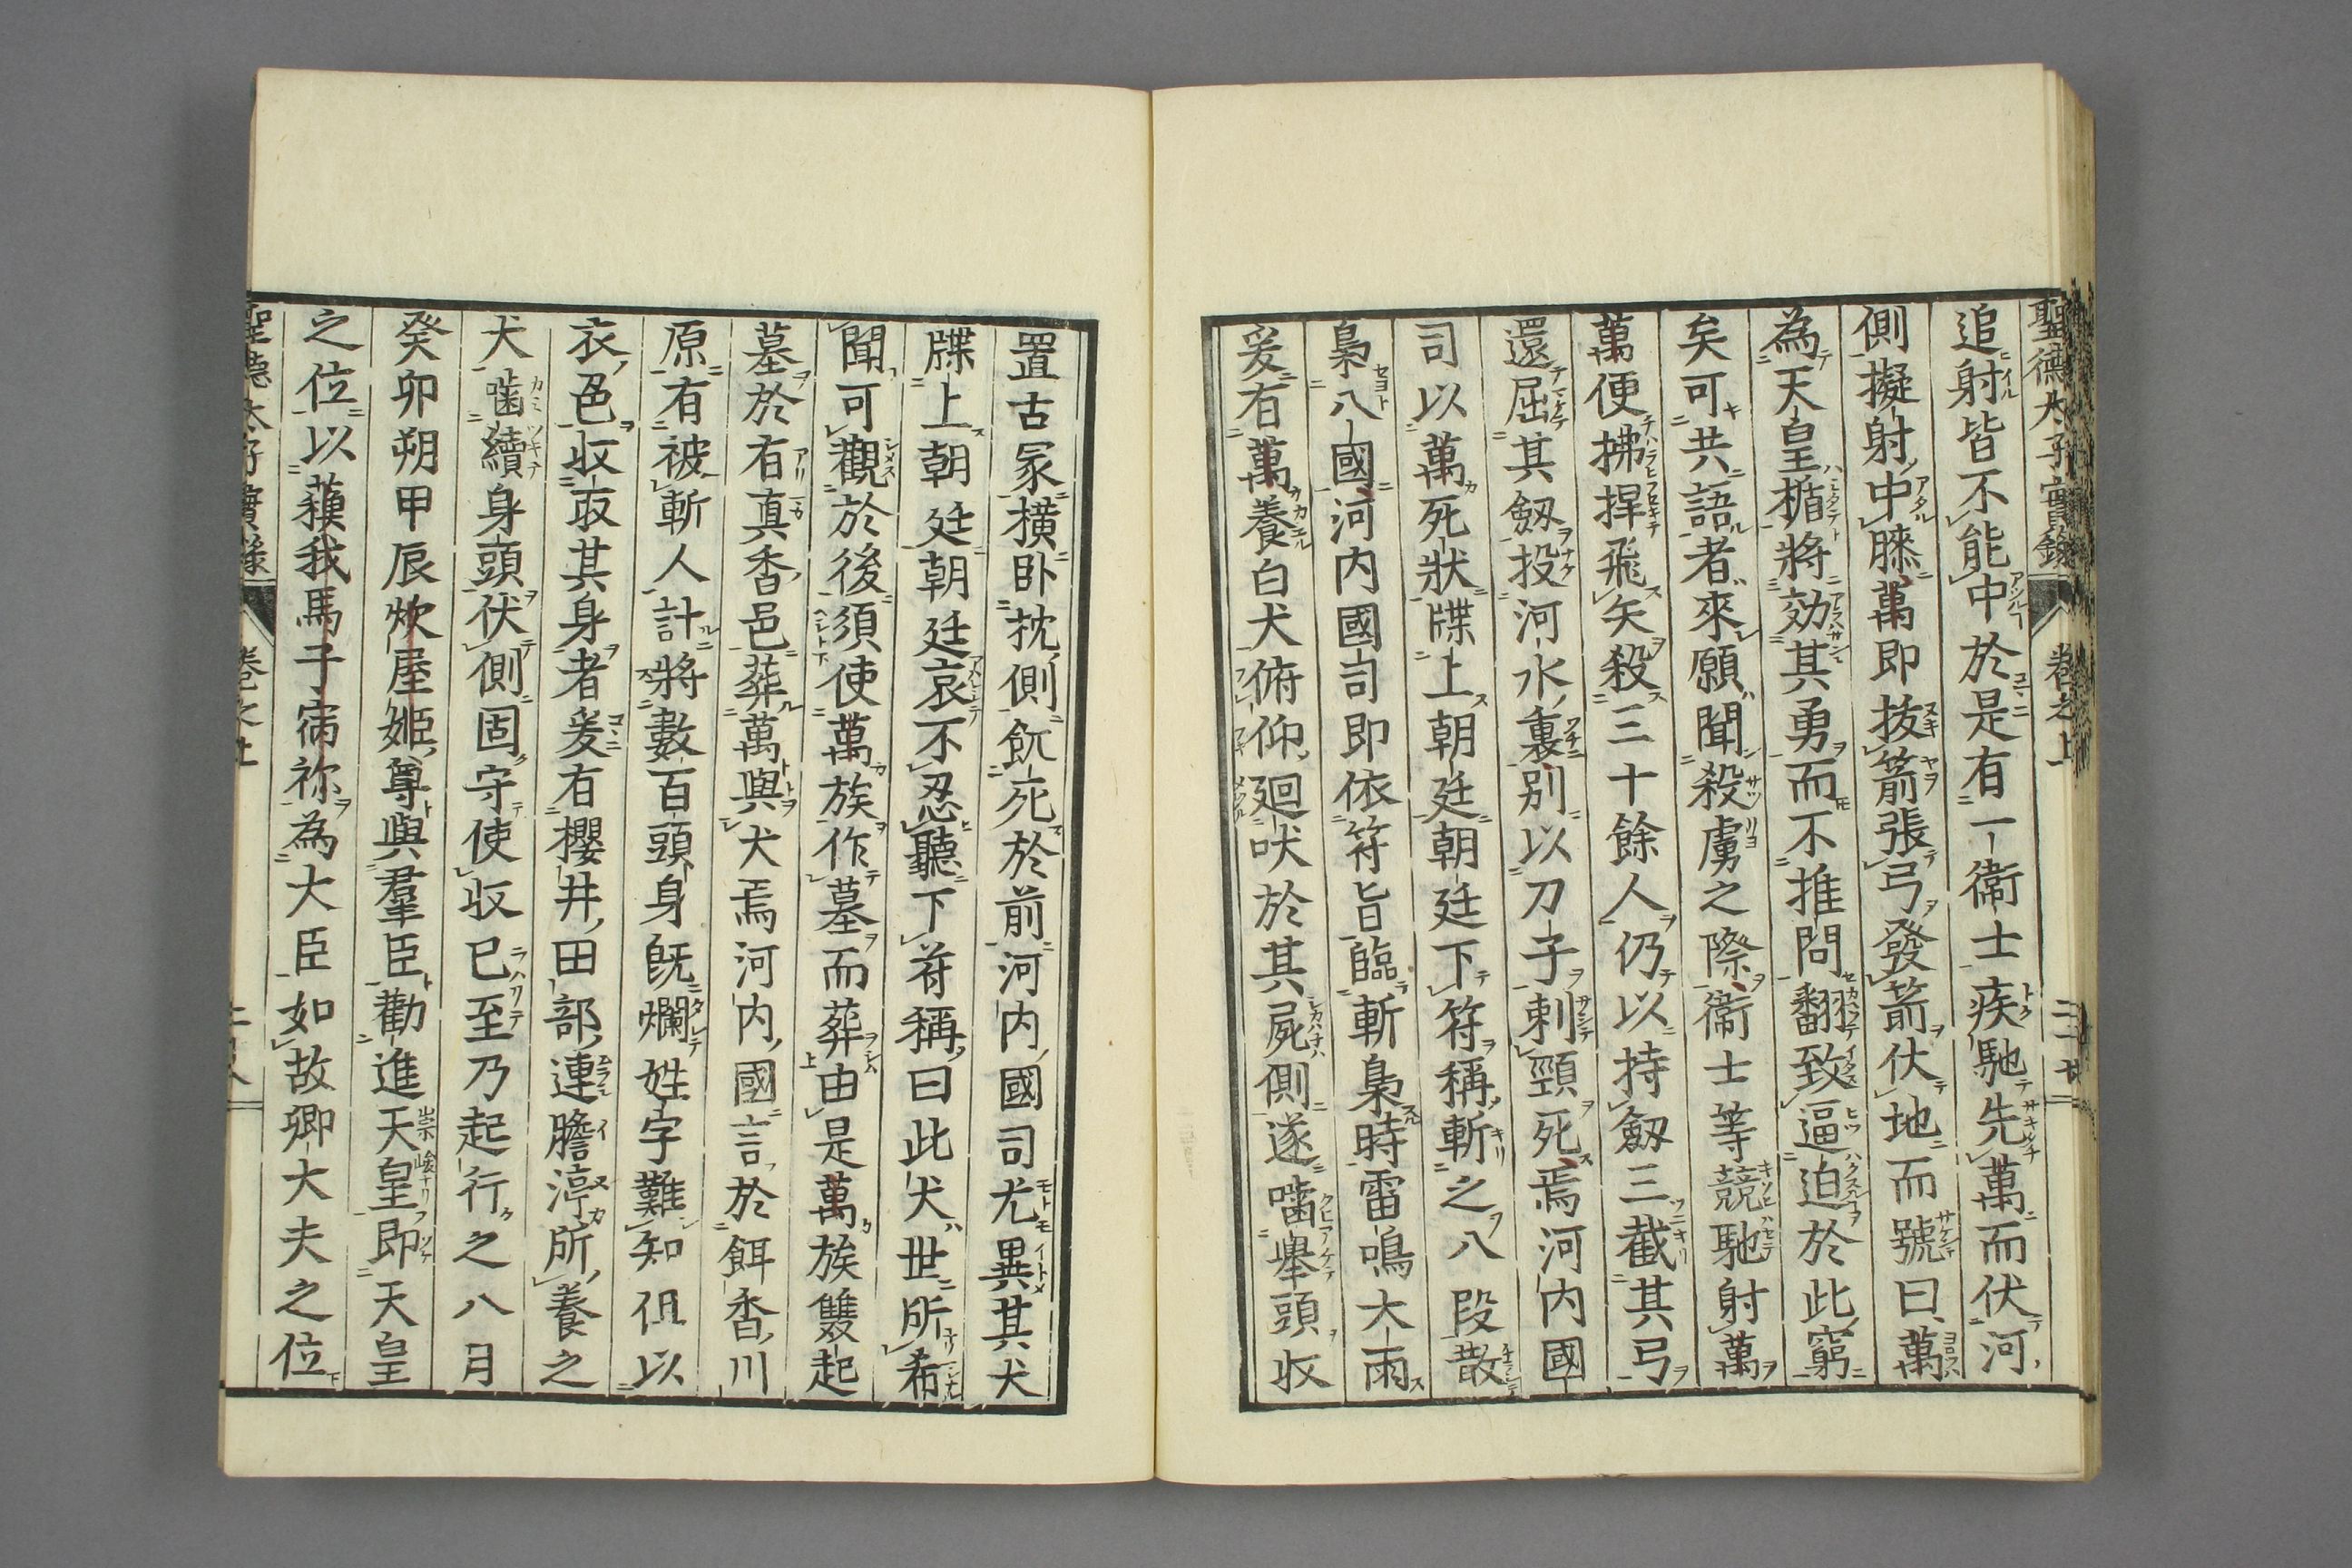 聖德太子實錄 卷之上
追射皆不能中於是有一衞士疾馳先萬而伏河
側擬射中膝萬即拔箭張弓發箭伏地而號曰萬
為天皇楯將効其勇而不推問翻致逼迫於此窮
矣可共語者來願聞殺虜之際衞士等競馳射萬
萬便拂捍飛矢殺三十餘人仍以持劔三截其弓
還屈其劔投河水裏別以刀子刺頸死焉河内國
司以萬死狀牒上朝廷朝廷下符稱斬之八段散
梟八國河内國司即依符旨臨斬梟時雷鳴大雨
爰有萬養白犬俯仰廻吠於其屍側遂嚙舉頭收
置古冢横卧枕側飢死於前河内國司尤異其犬
牒上朝廷朝廷哀不忍聽下符稱曰此犬世所希
聞可觀於後須使萬族作墓而葬由是萬族雙起
墓於有真香邑葬萬與犬焉河内國言於餌香川
原有被斬人計將數百頭身既爛姓字難知但以
衣色收取其身者爰有櫻井田部連膽渟所養之
犬嚙續身頭伏側固守使收已至乃起行之八月
癸卯朔甲辰炊屋姬尊與羣臣勸進天皇即天皇
之位以蘓我馬子宿祢為大臣如故卿大夫之位
聖德太子實錄 卷之上